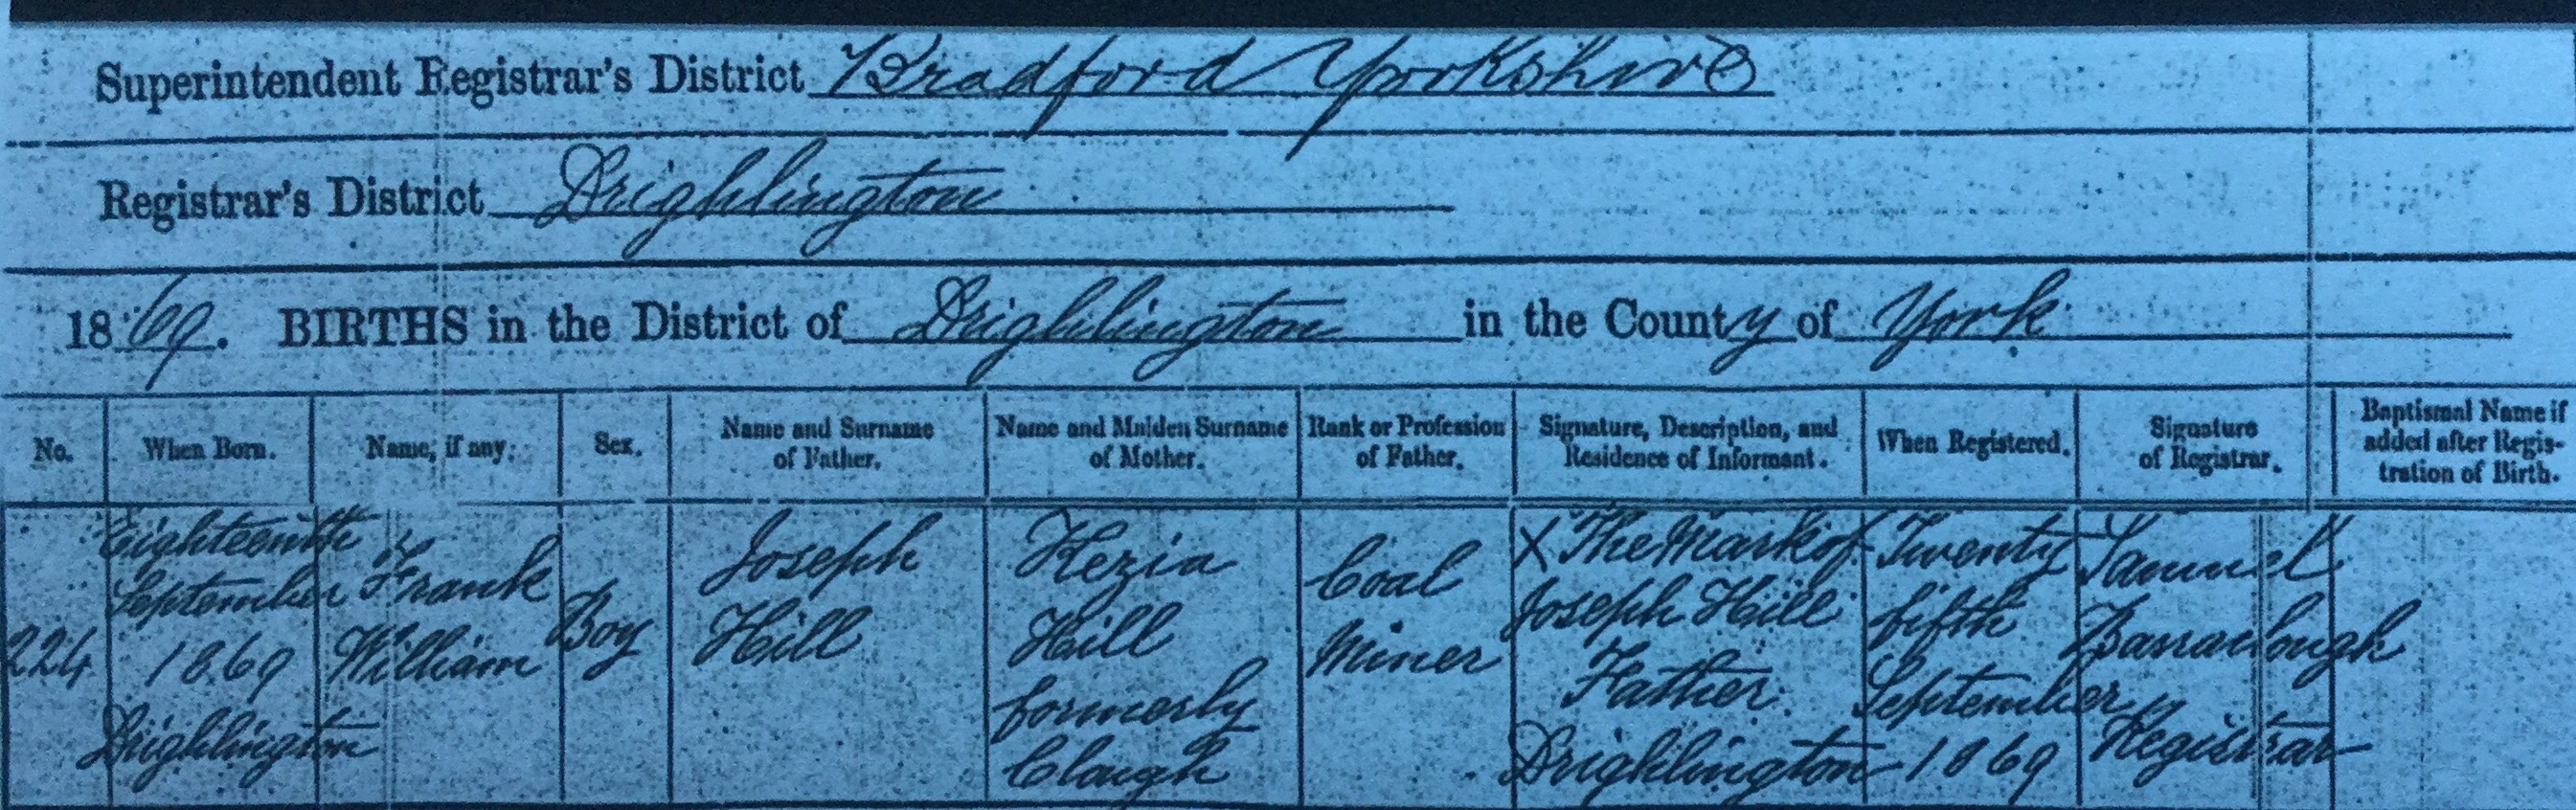 Superintendent Registrar's District Bradford Yorkshire
Registrar's District Drighlington
1869. BIRTHS in the District of Drighlington in the County of York
No. When Born. Name, if any. Sex. Name and Surname of Father. Name and Maiden Surname of Mother. Rank or Profession of Father. Signature, Description, and Residence of Informant. When Registered. Signature of Registrar. Baptismal Name if added after Registration of Birth.
224
Eighteenth
September
1869
Drighlington
Frank
William
Boy
Joseph
Hill
Kezia
Hill
formerly
Clough
Coal
Miner
X The Mark of
Joseph Hill
Father
Drighlington
Twenty
fifth
September
1869
Samuel
Barraclough
Registrar